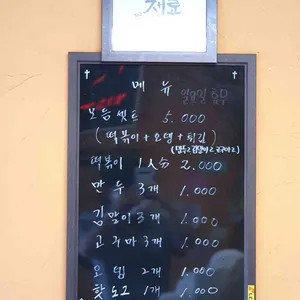 재료
메뉴 일요일 휴무
모듬셋트 5.000
(떡볶이+오뎅+튀김)
떡볶이 1人分 2.000
만두 3개 1.000
김말이 3개 1.000
고구마 3개 1.000
오뎅 2개 1.000
핫도그 1개 1.000